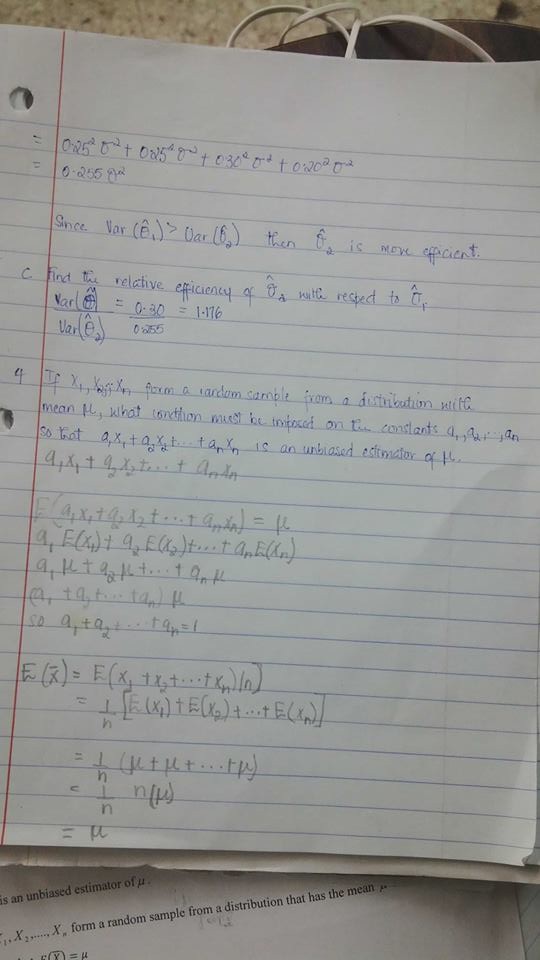 = 0.25²σ² + 0.25²σ² + 0.30²σ² + 0.20²σ²
= 0.255σ²
Since Var(θ̂₁) > Var(θ̂₂) then θ̂₂ is more efficient.
C Find the relative efficiency of θ̂₂ with respect to θ̂₁
Var(θ̂) = 0.30 = 1.176
Var(θ̂₂) 0.255
4 If X₁, X₂, ..., Xn form a random sample from a distribution with
mean μ, what condition must be imposed on the constants a₁, a₂, ..., an
so that a₁X₁ + a₂X₂ + ... + anXn is an unbiased estimator of μ.
a₁x₁ + a₂x₂ + ... + anxn
E(a₁x₁ + a₂x₂ + ... + anxn) = μ
a₁E(x₁) + a₂E(x₂) + ... + anE(xn)
a₁μ + a₂μ + ... + anμ
(a₁ + a₂ + ... + an)μ
so a₁ + a₂ + ... + an = 1
E(x̄) = E(x₁ + x₂ + ... + xn)/n]
= 1/n [E(x₁) + E(x₂) + ... + E(xn)]
= 1/n (μ + μ + ... + μ)
= 1/n n(μ)
= μ
is an unbiased estimator of μ.
X₁, X₂, ...., Xn form a random sample from a distribution that has the mean μ
E(X̄) = μ